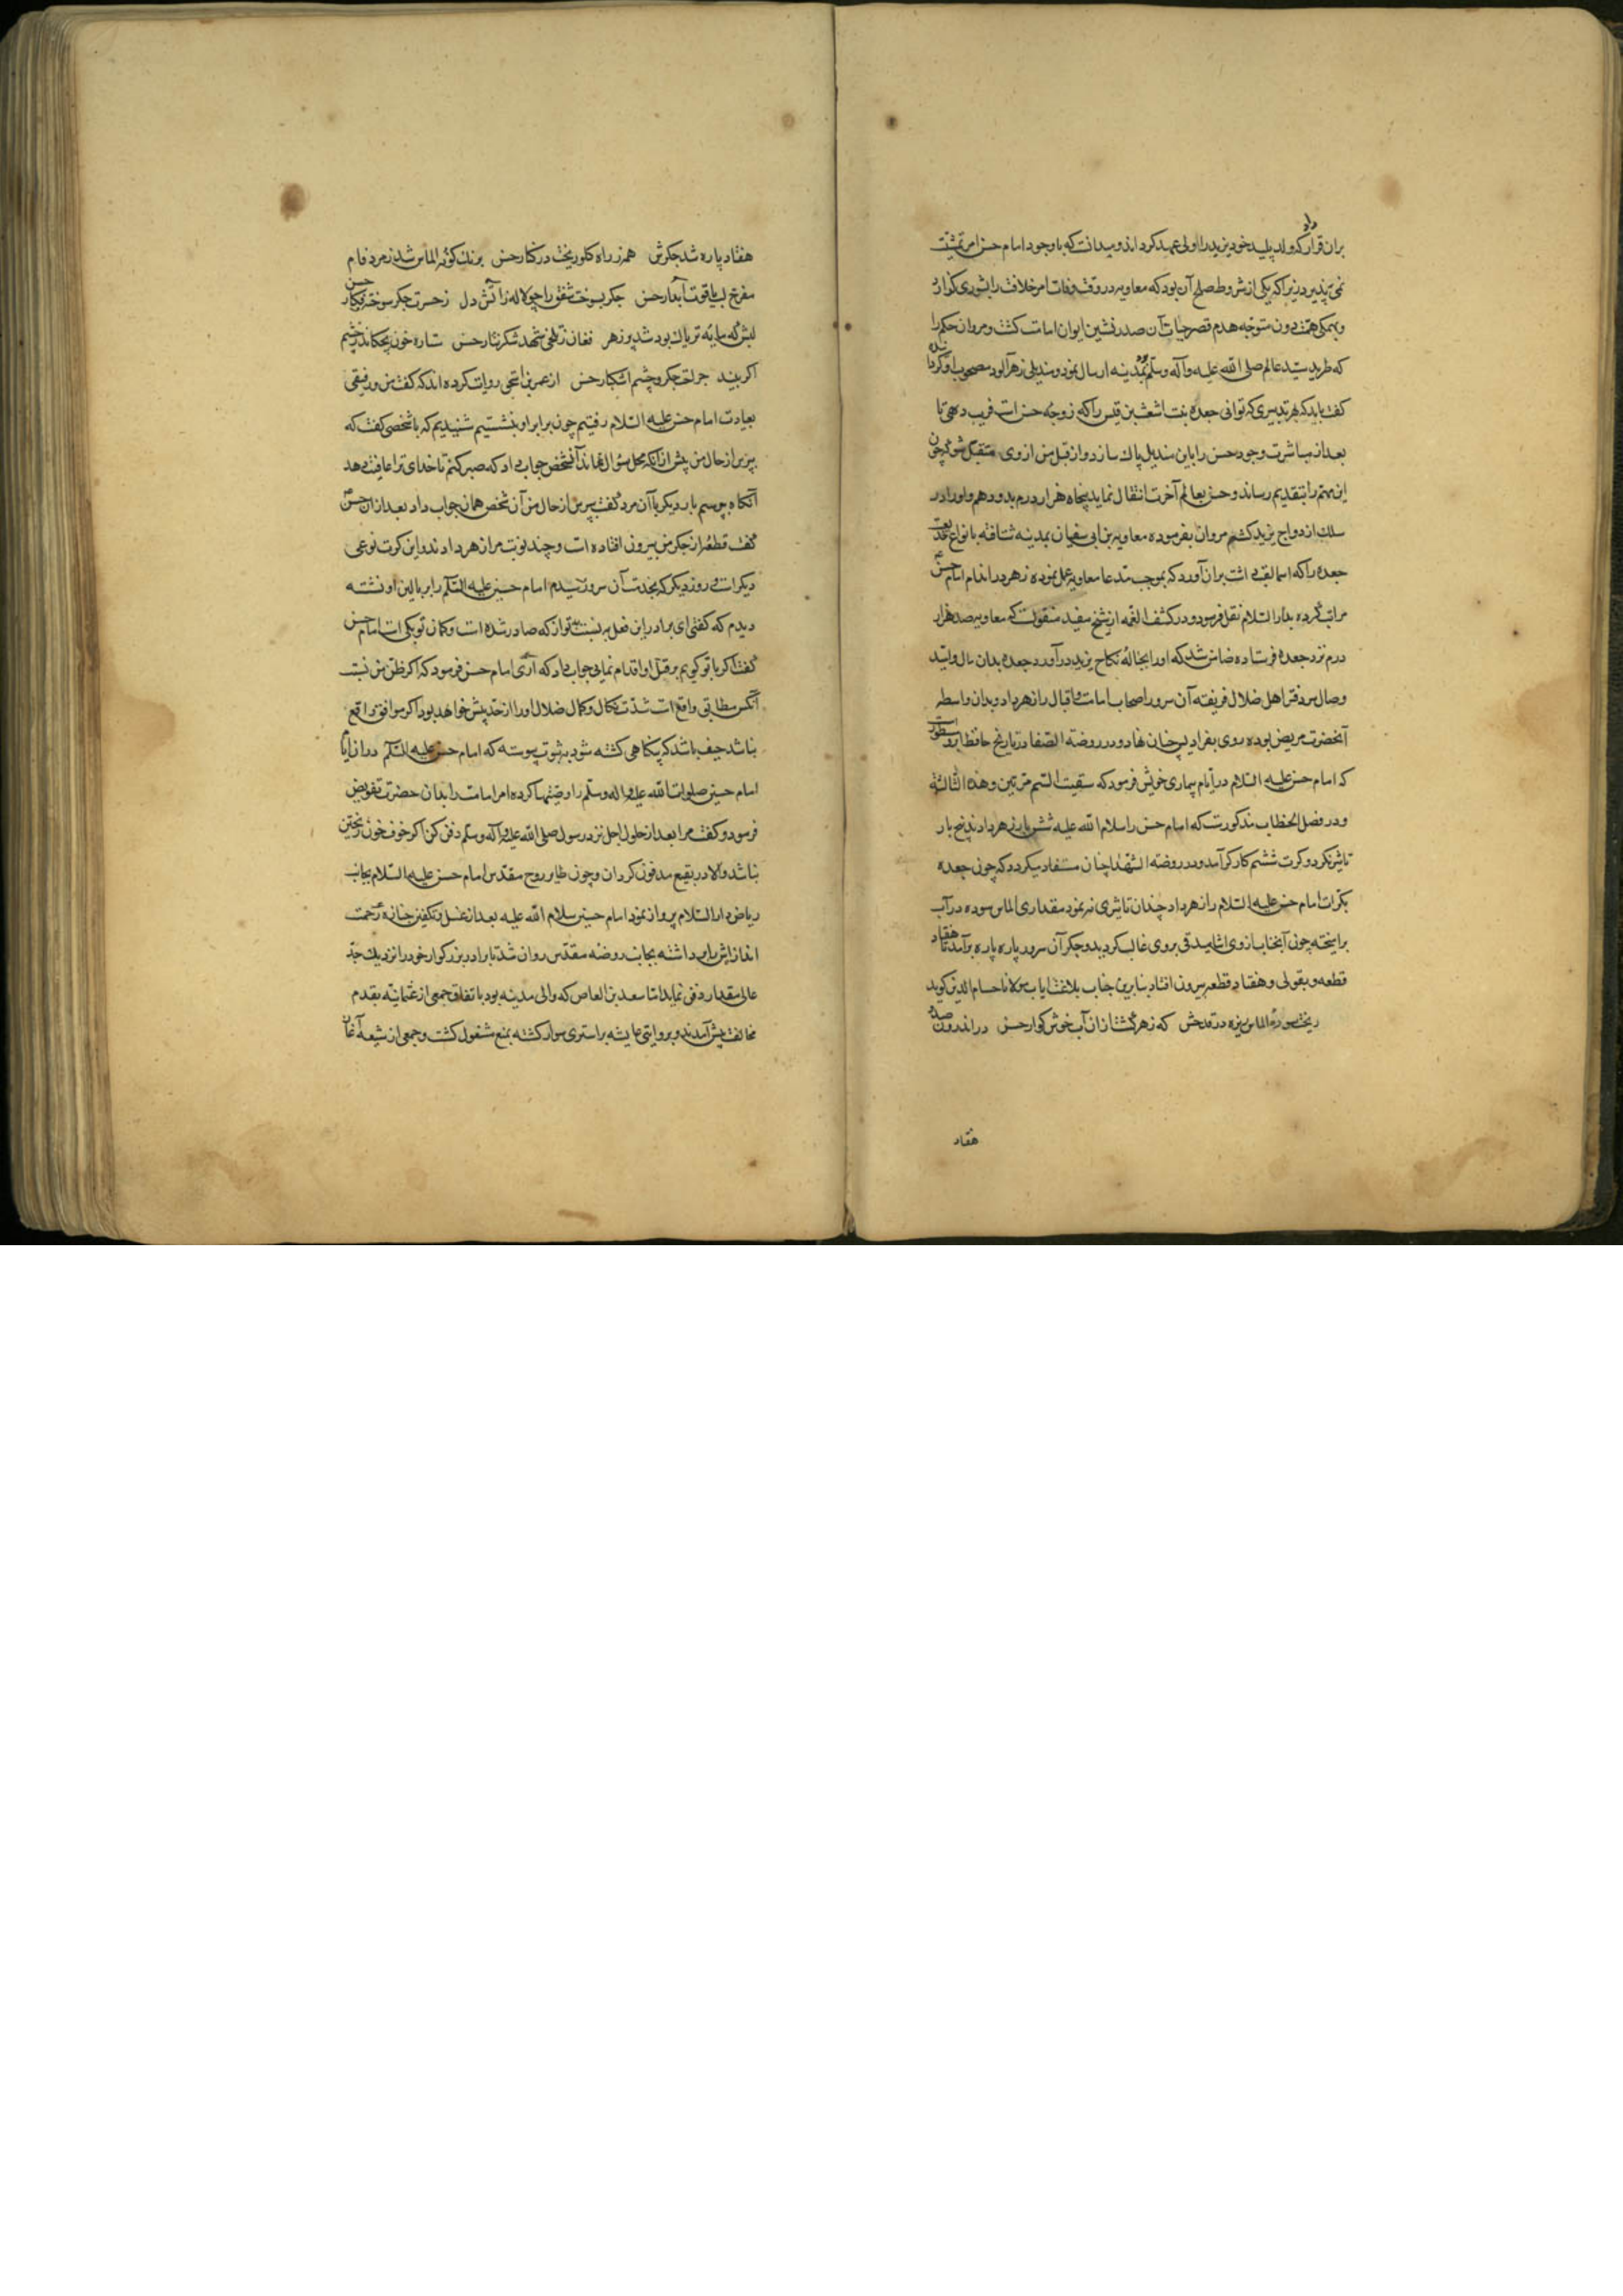 بران قرار داد که ولد پلید خود یزید را ولی عهد کرداند و میدانست که با وجود امام حسن امر تمشیت
نمی پذیرد زیرا که یکی از شروط صلح آن بود که معاویه در وقت وفات امر خلافت را بشوری گذارد
و بهمکی همت دون متوجه هدم قصر حیات آن صدرنشین ایوان امامت کشت و مروان حکم را
که طرید سید عالم صلی الله علیه وآله وسلم بود بمدینه ارسال نمود و مندیلی زهرآلود مصحوب او کردانیده
کفت باید که بهر تدبیری که توانی جعده بنت اشعث بن قیس را که زوجه حسن است فریب دهی تا
بعد از مباشرت وجود حسن را باین مندیل پاک سازد و از قبل من از وی متقبل شو که چون
این مهم را بتقدیم رساند و حسن بعالم آخرت انتقال نماید پنجاه هزار درم بدو دهم و او را در
سلک ازدواج یزید کشم مروان بفرموده معاویه بن ابی سفیان بمدینه شتافته بانواع خدیعت
جعده را که اسما لقب داشت بران آورد که بموجب مدعا معاویه عمل نموده زهر در اندام امام حسن
مراتب کرده بدار السلام نقل فرمود و در کشف الغمه از شیخ مفید منقولست که معاویه صد هزار
درم نزد جعده فرستاده ضامن شد که او را بحباله نکاح یزید در آورد جعده بدان مال و امید
وصال سر دفتر اهل ضلال فریفته آن سرور اصحاب امامت و اقبال را زهر داد و بدان واسطه
آنحضرت مریض بوده روی بفرادیس جنان نهاد و در روضة الصفا در تاریخ حافظ ابرو مسطور است
که امام حسن علیه السلام در ایام بیماری خویش فرمود که سقیت السم مرتین و هذه الثالثة
و در فصل الخطاب مذکورست که امام حسن را سلام الله علیه شش بار زهر دادند پنج بار
تاثیر نکرد و کرت ششم کارکر آمد و در روضة الشهدا چنان مستفاد میکردد که چون جعده
بکرات امام حسن علیه السلام را زهر داد چندان تاثیری نه نمود مقداری الماس سوده در آب
برآمیخته چون آنجناب ازوی اشامید قی بروی غالب کردید و جکر آن سرور پاره پاره برآمد تا هفتاد
قطعه و بقولی و هفتاد قطعه بیرون افتاد بنابرین جناب بلاغت مآب مولانا حسام الدین کوید
ریخت سوده الماس ریزه در قدحش که زهر کشت از ان آب خوش کوار حسن در اندرون صد
هفتاد
هفتاد پاره شد جکرش همه ز راه کلو ریخت در کنار حسن برنک کونه الماس شد زمرد فام
مفرح لب یاقوت آبدار حسن جکر بسوخت شفق را چو لاله ز آتش دل ز حسرت جکر سوخته فکار حسن
لبش که مایه تریاک بود شد پر زهر فغان ز تلخی شهد شکر نثار حسن ستاره خون بچکاند ز چشم
اکر بیند جراحت جکر و چشم اشکبار حسن از عمر بن اسحق روایت کرده اند که کفت من و رفیقی
بعیادت امام حسن علیه السلام رفتیم چون برابر او بنشستیم شنیدیم که با شخصی کفت که
بپرس از حال من پیش از انکه مجل سؤال نماند آنشخص جواب داد که صبر کنم تا خدای ترا عافیت دهد
آنکاه بپرسم بار دیکر با آن مرد کفت بپرس از حال من آن شخص همان جواب داد بعد ازان حسن
کفت قطعه از جکر من بیرون افتاده است و چند نوبت مرا زهر دادند و این کرت نوعی
دیکر است و روز دیکر که بخدمت آن سرور رسیدم امام حسین علیه السلام را بر بالین او نشسته
دیدم که کفتی ای برادر این فعل به نسبت تو از که صادر شده است و کمان تو بکی است امام حسن
کفت اکر با تو کویم بر قتل او اقدام نمایی جواب داد که آری امام حسن فرمود که اکر ظن من نسبت
آنکس مطابق واقع است شدت نکال و کمال ضلال او را از حد بیش خواهد بود و اکر موافق واقع
نباشد حیف باشد که بیکناهی کشته شود بثبوت پیوسته که امام حسن علیه السلم در ان ایام
امام حسین صلوات الله علیه واله وسلم را وصیتها کرده امر امامت را بدان حضرت تفویض
فرمود و کفت مرا بعد از حلول اجل نزد رسول صلی الله علیه وآله وسلم دفن کن اکر خوف خون ریختن
نباشد والا در بقیع مدفون کردان و چون طایر روح مقدس امام حسن علیه السلام بجانب
ریاض دار السلام پرواز نمود امام حسین سلام الله علیه بعد از غسل و تکفین جنازه رحمت
اندازاش را برداشته بجانب روضه مقدس روان شد تا برادر بزرکوار خود را نزدیک جد
عالی مقدار دفن نماید اما سعد بن العاص که والی مدینه بود باتفاق جمعی از عثمانیه بقدم
مخالفت پیش آمدند و بروایتی عایشه بر استری سوار کشته بمنع مشغول کشت و جمعی از شیعه آغاز